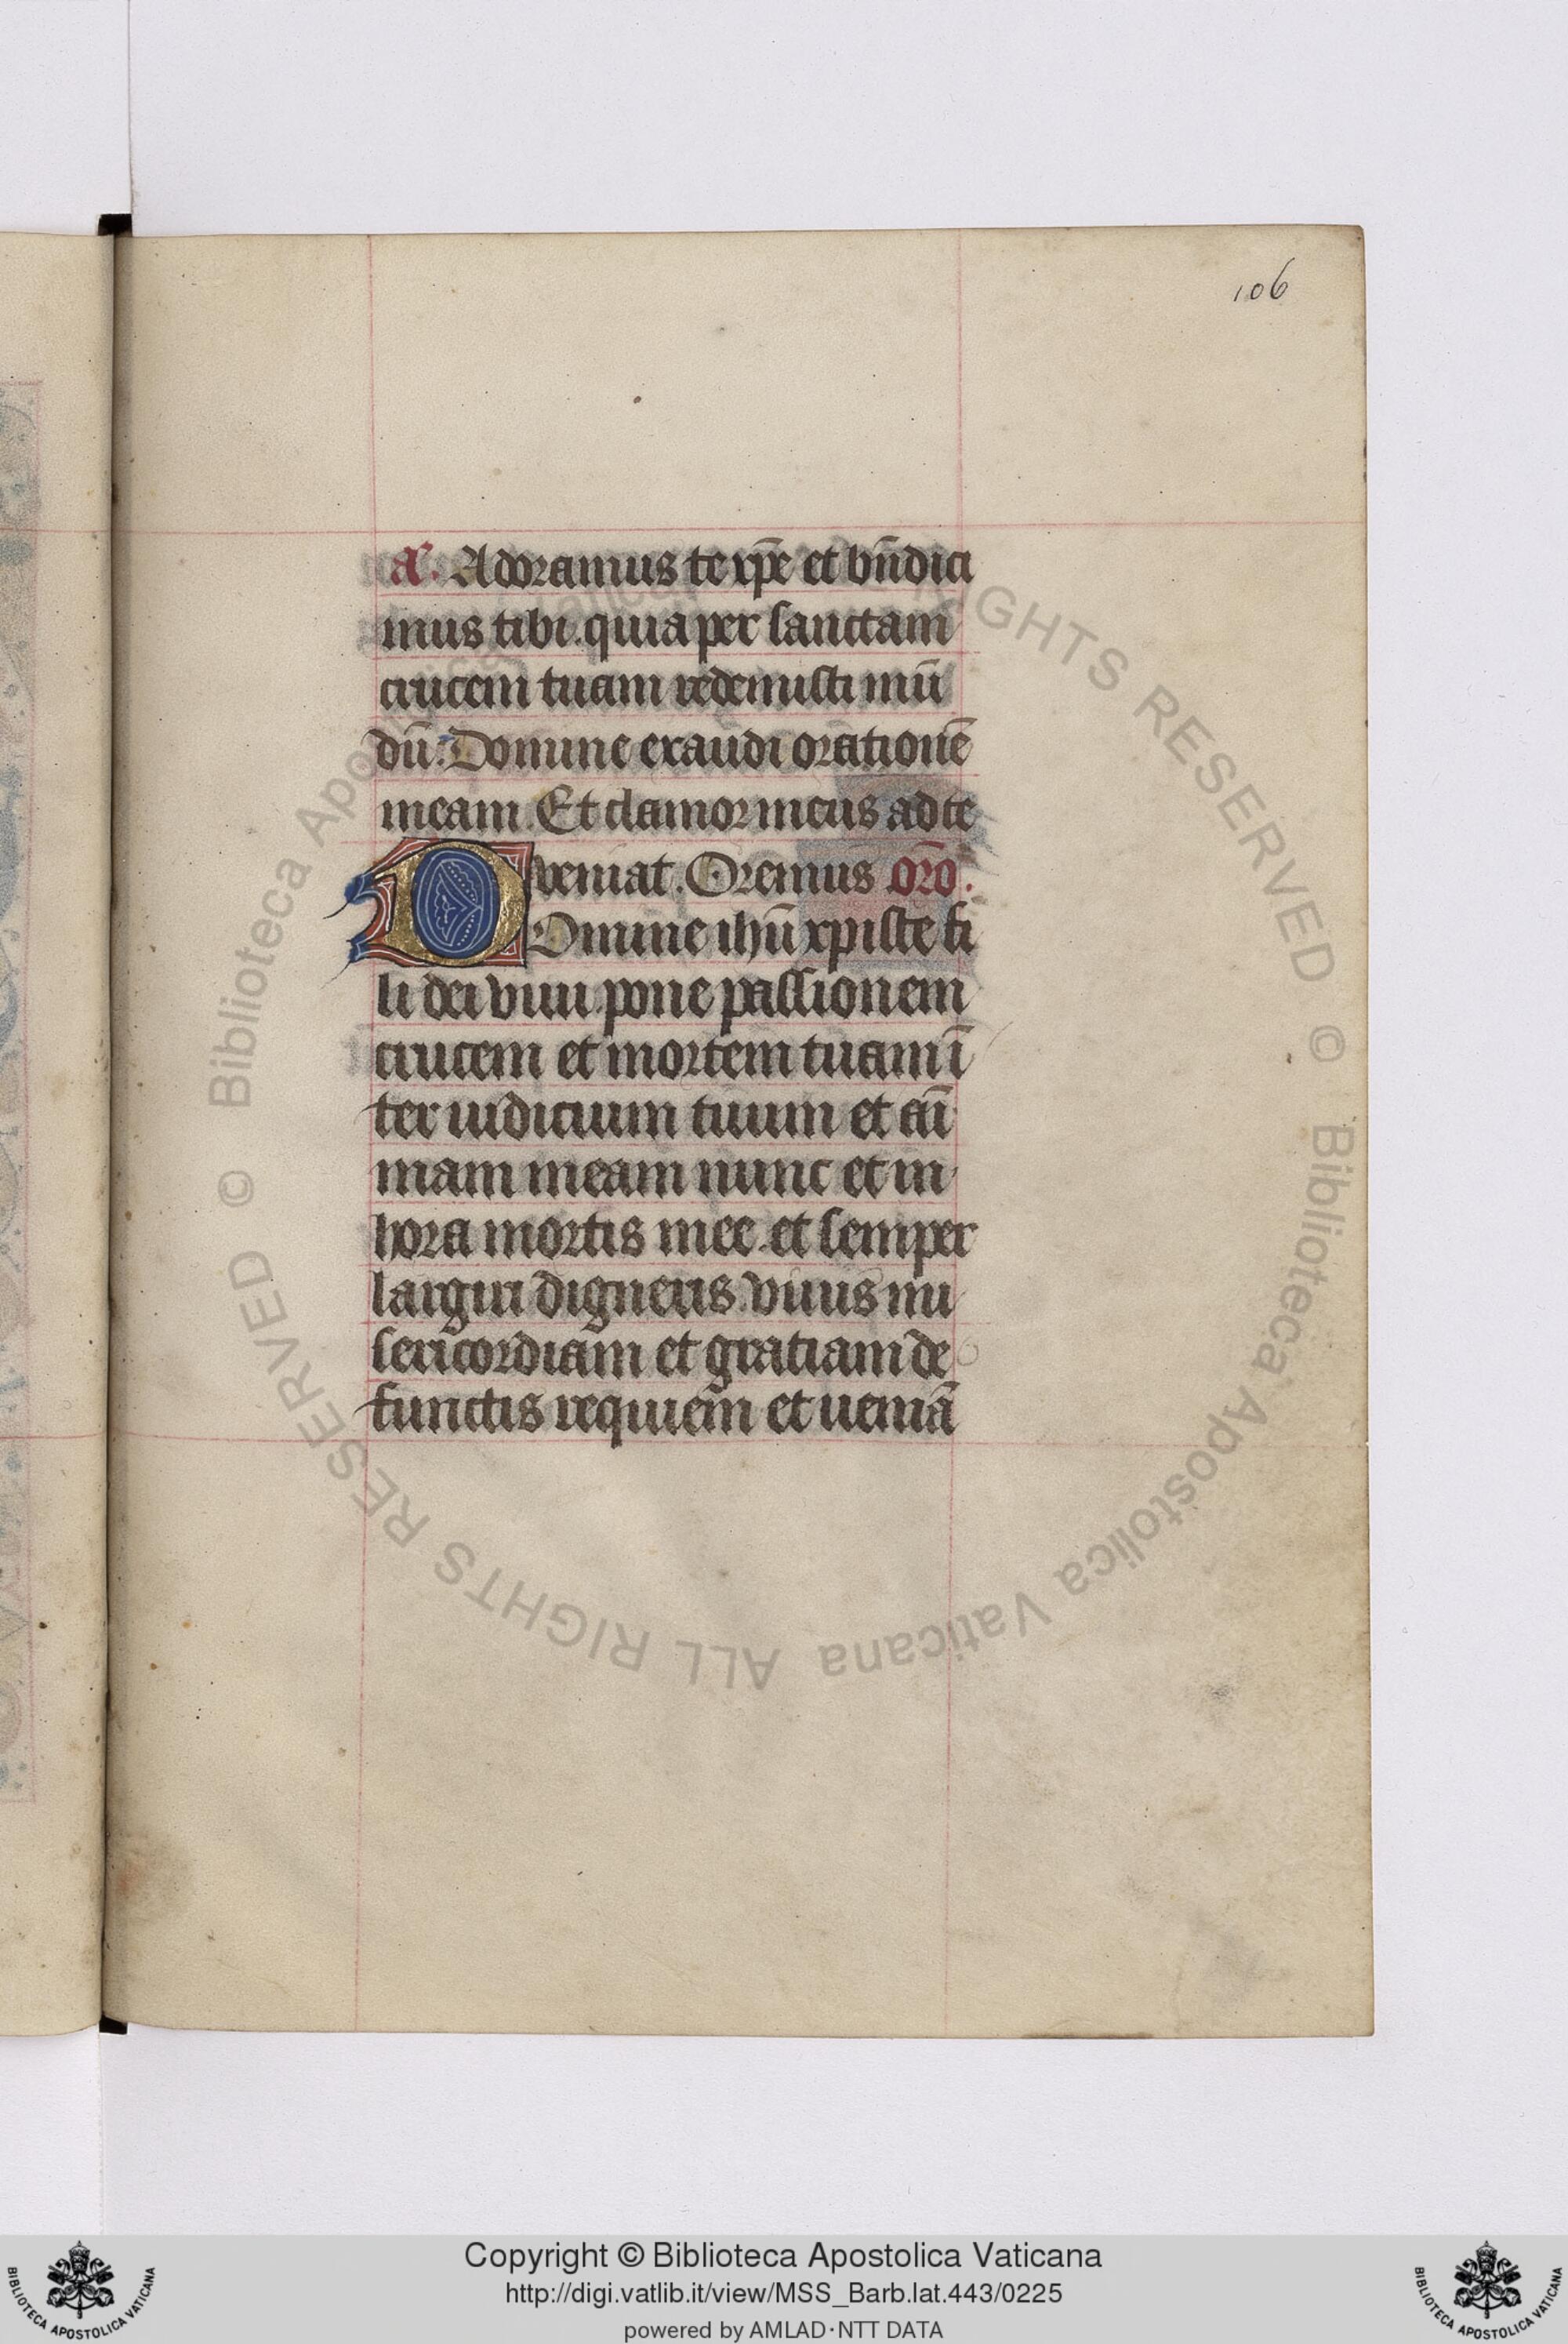 106
aꝰ. Adoramus te xp̄e et bn̄dici
mus tibi. quia per sanctam
crucem tuam redemisti mū
dū. Domine exaudi orationē
meam. Et clamor meus ad te
veniat. Oremus or̄o.
DOmine ihū xpiste fi
li dei viui pone passionem
crucem et mortem tuam ī
ter iudicium tuum et ani
mam meam nunc et in
hora mortis mee. et semper
largiri digneris. viuis mi
sericordiam et gratiam de
functis requiem et ueniā
© Biblioteca Apostolica Vaticana ALL RIGHTS RESERVED © Biblioteca Apostolica Vaticana ALL RIGHTS RESERVED
Copyright © Biblioteca Apostolica Vaticana
http://digi.vatlib.it/view/MSS_Barb.lat.443/0225
powered by AMLAD·NTT DATA
BIBLIOTECA APOSTOLICA VATICANA
BIBLIOTECA APOSTOLICA VATICANA